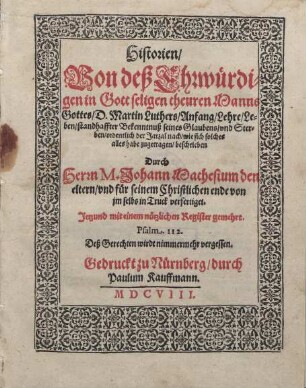 Historien/
Von deß Ehrwürdi-
gen in Gott seligen theuren Manns
Gottes/ D. Martin Luthers/ Anfang/ Lehre/ Le-
ben/ standhaffter Bekenntnuß seines Glaubens/ vnd Ster-
ben/ ordentlich der Jarzal nach/ wie sich solches
alles habe zugetragen/ beschrieben
Durch
Herrn M. Johann Mathesium den
eltern/ vnd für seinem Christlichen ende von
jm selbs in Truck verfertiget.
Jetzund mit einem nützlichen Register gemehrt.
Psalm. 112.
Deß Gerechten wirdt nimmermehr vergessen.
Gedruckt zu Nürnberg/ durch
Paulum Kauffmann.
MDCVIII.